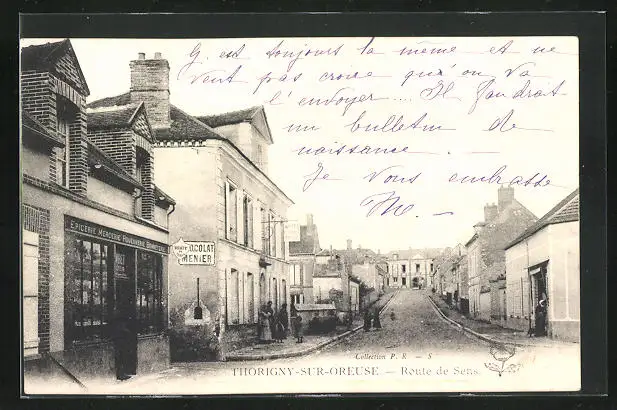 G. est toujours la même et ne
veut pas croire qu'on va
l'envoyer .... Il faudrait
un bulletin de
naissance. —
Je vous embrasse
EPICERIE MERCERIE ROUENNERIE BONNETERIE
CHOCOLAT
MENIER
Collection P. R. — S
THORIGNY-SUR-OREUSE. — Route de Sens